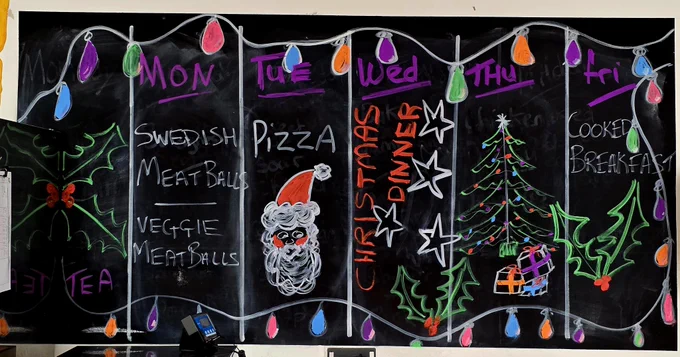 MON
Tue
Wed
THU
fri
SWEDISH
MEATBALLS
VEGGIE
MEATBALLS
PiZZA
CHRISTMAS
DINNER
COOKED
BREAKFAST
TEA